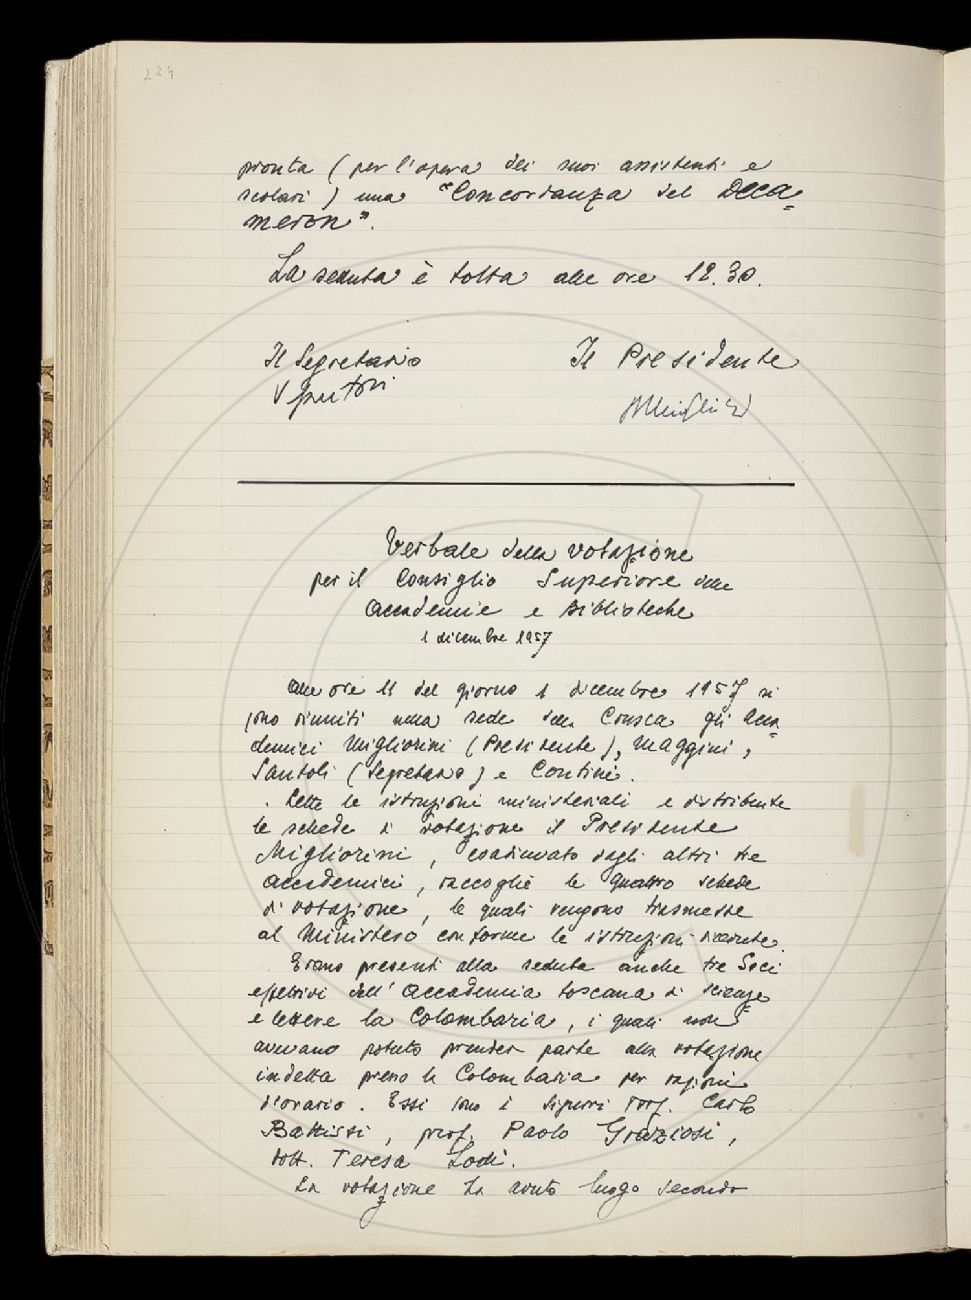 224
pronta (per l'opera dei suoi assistenti e
scolari) una "Concordanza del Deca=
meron".
La seduta è tolta alle ore 12.30.
Il Segretario Il Presidente
V Santoli BMigliorini
Verbale della votazione
per il Consiglio Superiore delle
Accademie e Biblioteche
1 dicembre 1957
Alle ore 11 del giorno 1 dicembre 1957 si
sono riuniti nella sede della Crusca gli Acca=
demici Migliorini (Presidente), Maggini,
Santoli (Segretario) e Contini.
Lette le istruzioni ministeriali e distribuite
le schede di votazione il Presidente
Migliorini, coadiuvato dagli altri tre
accademici, raccoglie le quattro schede
di votazione, le quali vengono trasmesse
al Ministero conforme le istruzioni ricevute.
Erano presenti alla seduta anche tre Soci
effettivi dell'Accademia toscana di scienze
e lettere la Colombaria, i quali non
avevano potuto prender parte alla votazione
indetta presso la Colombaria per ragioni
d'orario. Essi sono i Signori Prof. Carlo
Battisti, prof. Paolo Graziosi,
dott. Teresa Lodi.
La votazione ha avuto luogo secondo